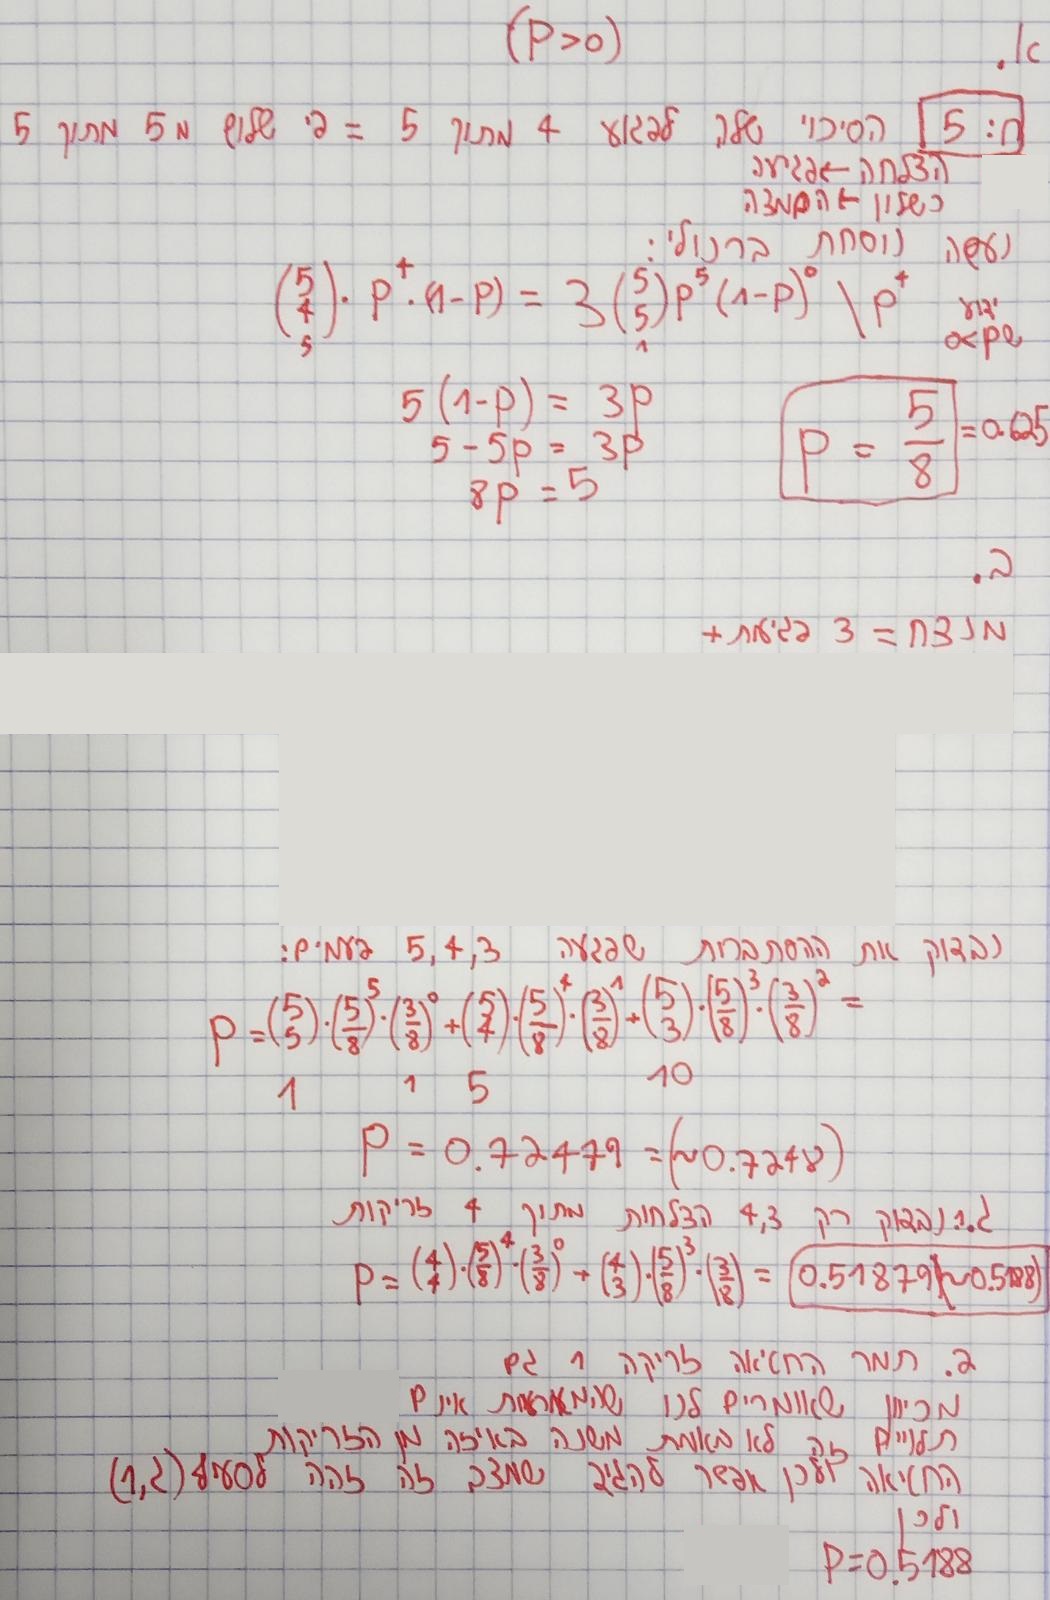 א. (P>0)
n: 5 הסיכוי שלה לפגוע 4 מתוך 5 = פי שלוש מ5 מתוך 5
הצלחה ← פגיעה
כשלון ← החמצה
נעשה נוסחת ברנולי:
(5 4) · p⁴ · (1-p) = 3 (5 5) p⁵ (1-p)⁰ \ p⁴ ידוע
5 1 שp>0
5(1-p) = 3p
5 - 5p = 3p
8p = 5
P = 5/8 = 0.625
ב.
מנצח = 3 פגיעות +
נבדוק את ההסתברות שפגעה 5,4,3 פעמים:
P = (5 5)·(5/8)⁵·(3/8)⁰ + (5 4)·(5/8)⁴·(3/8)¹ + (5 3)·(5/8)³·(3/8)² =
1 1 5 10
P = 0.72479 = (~0.7248)
ג.1. נבדוק רק 4,3 הצלחות מתוך 4 זריקות
P = (4 4)·(5/8)⁴·(3/8)⁰ + (4 3)·(5/8)³·(3/8) = 0.51879 (~0.5188)
2. תמר החטיאה זריקה 1 גם
מכיוון שאומרים לנו שהמאורעות אינם
תלויים זה לא באמת משנה באיזה מן הזריקות
החטיאה ולכן אפשר להגיד שמצב זה זהה לסעיף (ג,1)
ולכן
P=0.5188